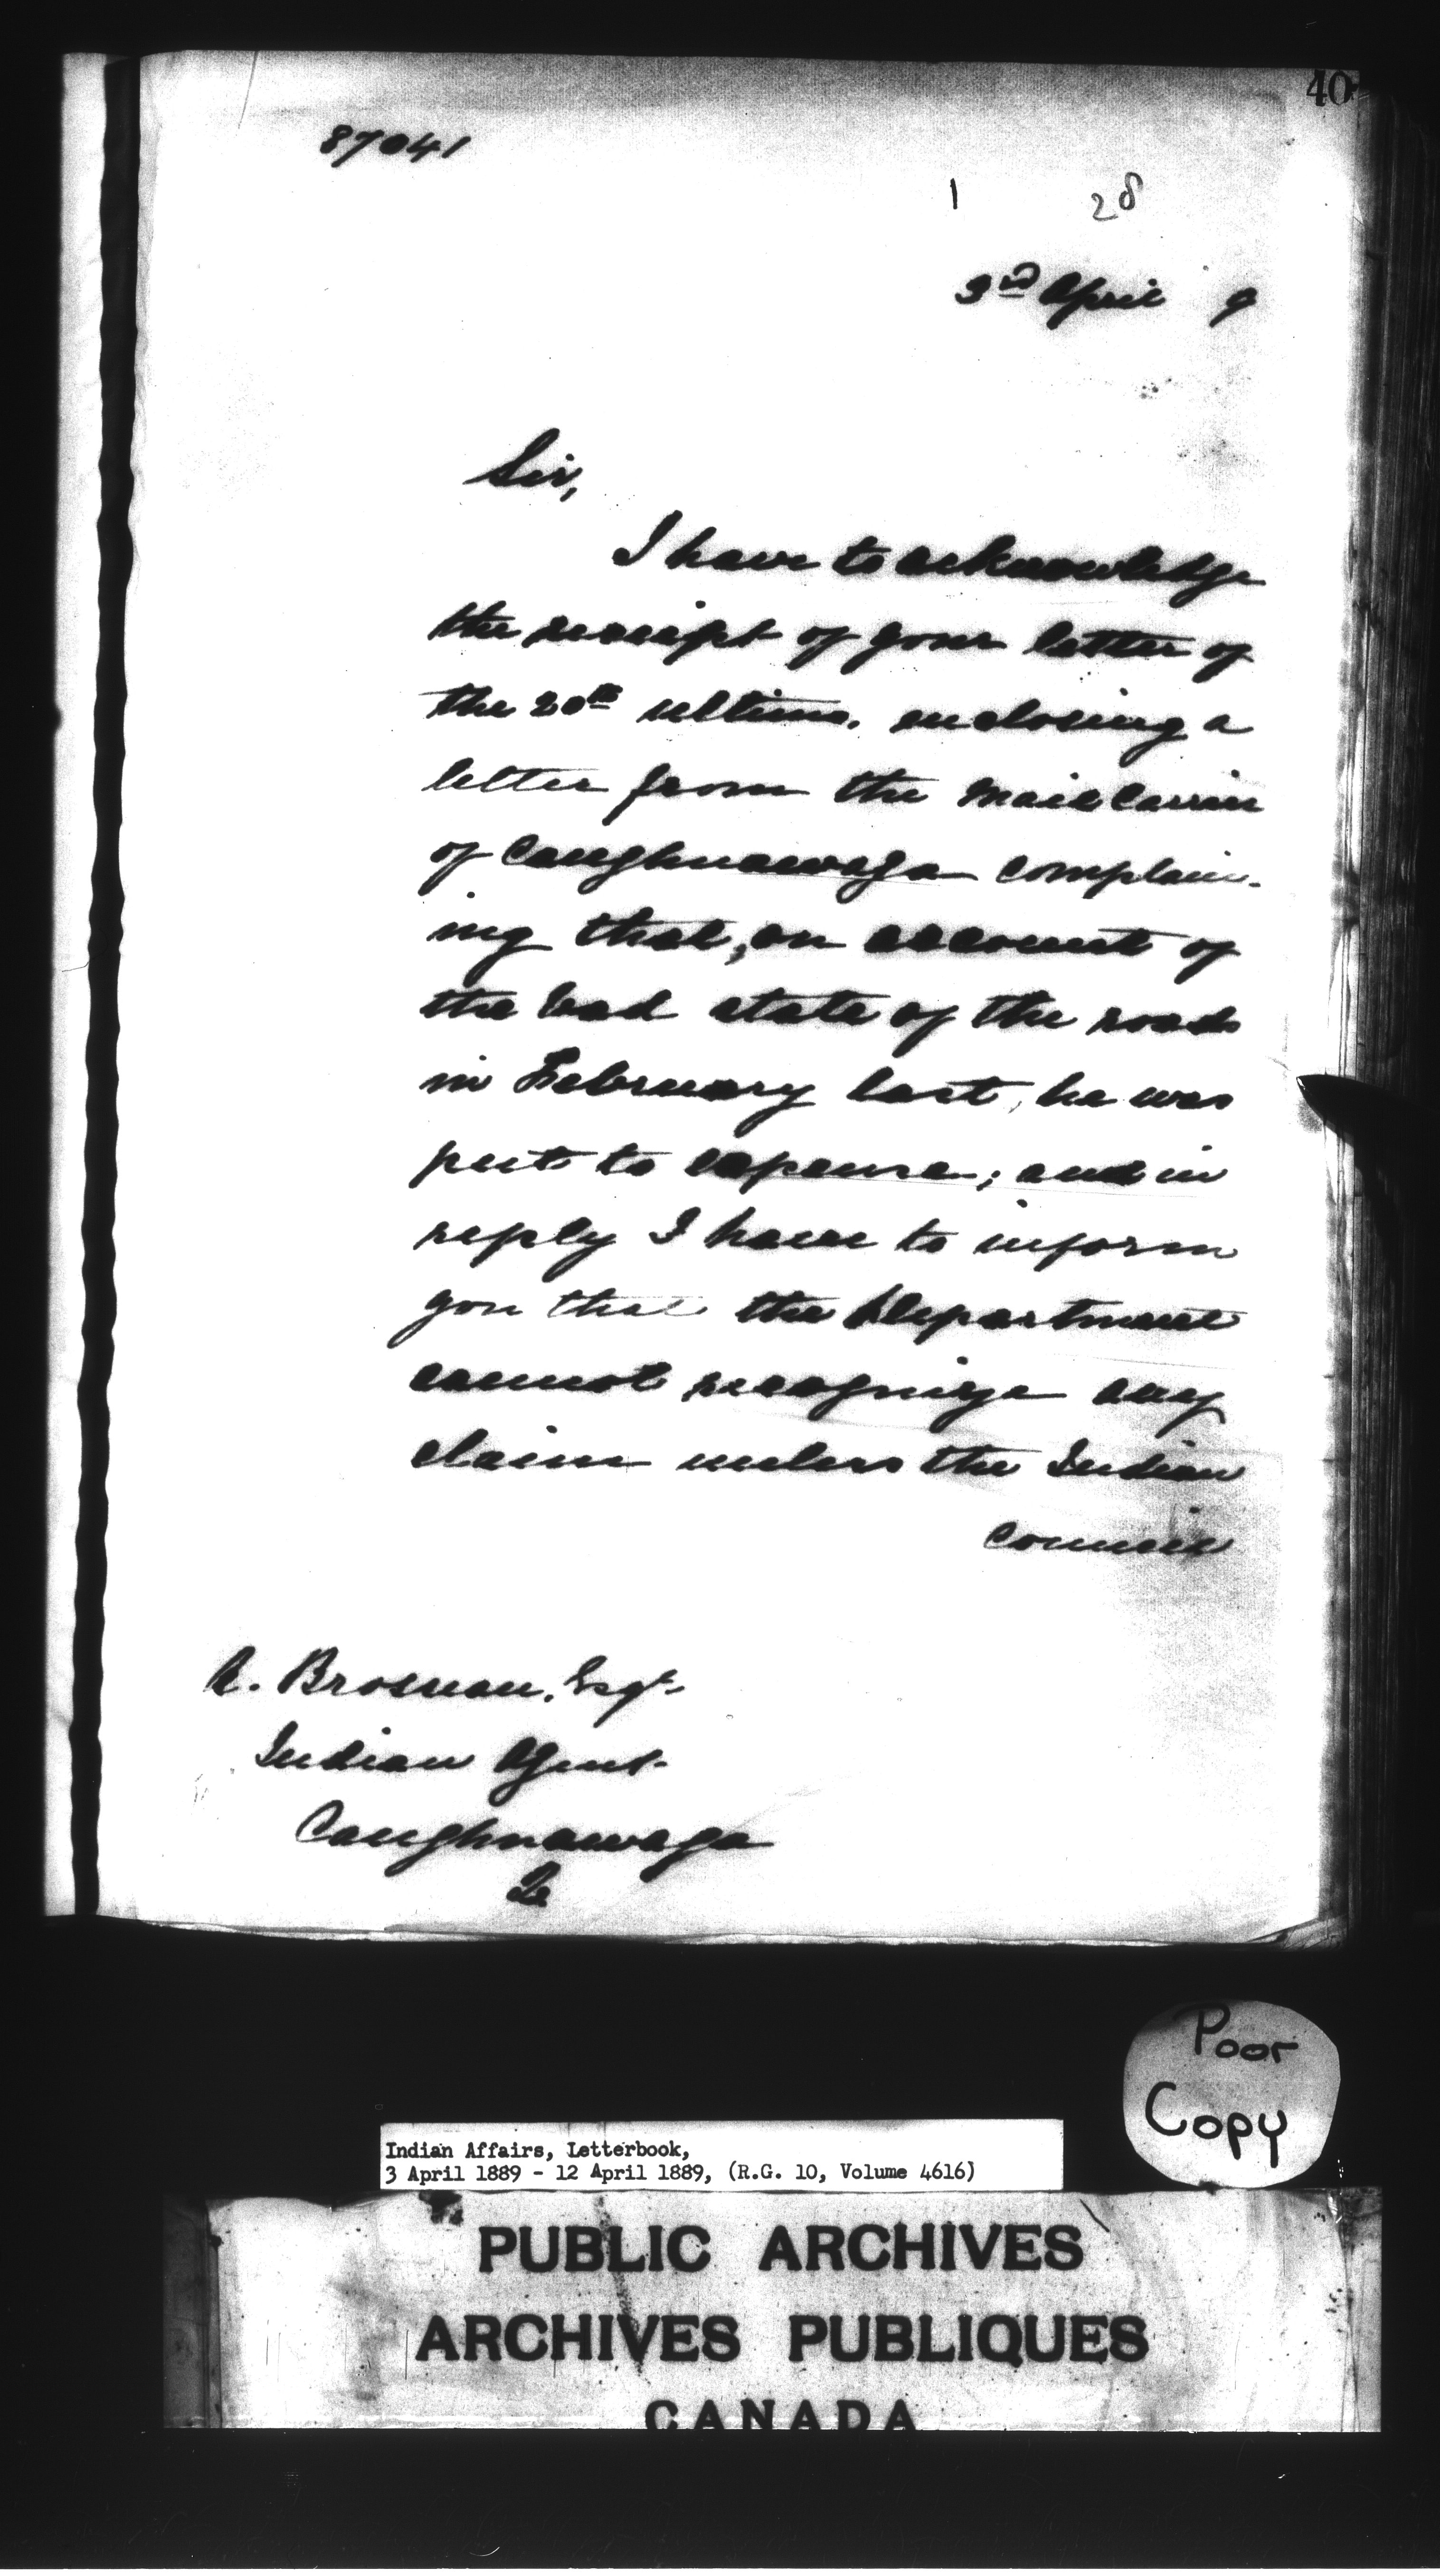 40
87041
1 28
3rd April 9
Sir,
I have to acknowledge
the receipt of your letter of
the 20th ultimo, enclosing a
letter from the Mail Carrier
of Caughnawaga complain-
ing that, on account of
the bad state of the roads
in February last, he was
put to expense; and in
reply I have to inform
you that the Department
cannot recognize any
claim unless the Indian
Council
A. Brosnan, Esqr.
Indian Agent
Caughnawaga
Q
Poor
Copy
Indian Affairs, Letterbook,
3 April 1889 - 12 April 1889, (R.G. 10, Volume 4616)
PUBLIC ARCHIVES
ARCHIVES PUBLIQUES
CANADA